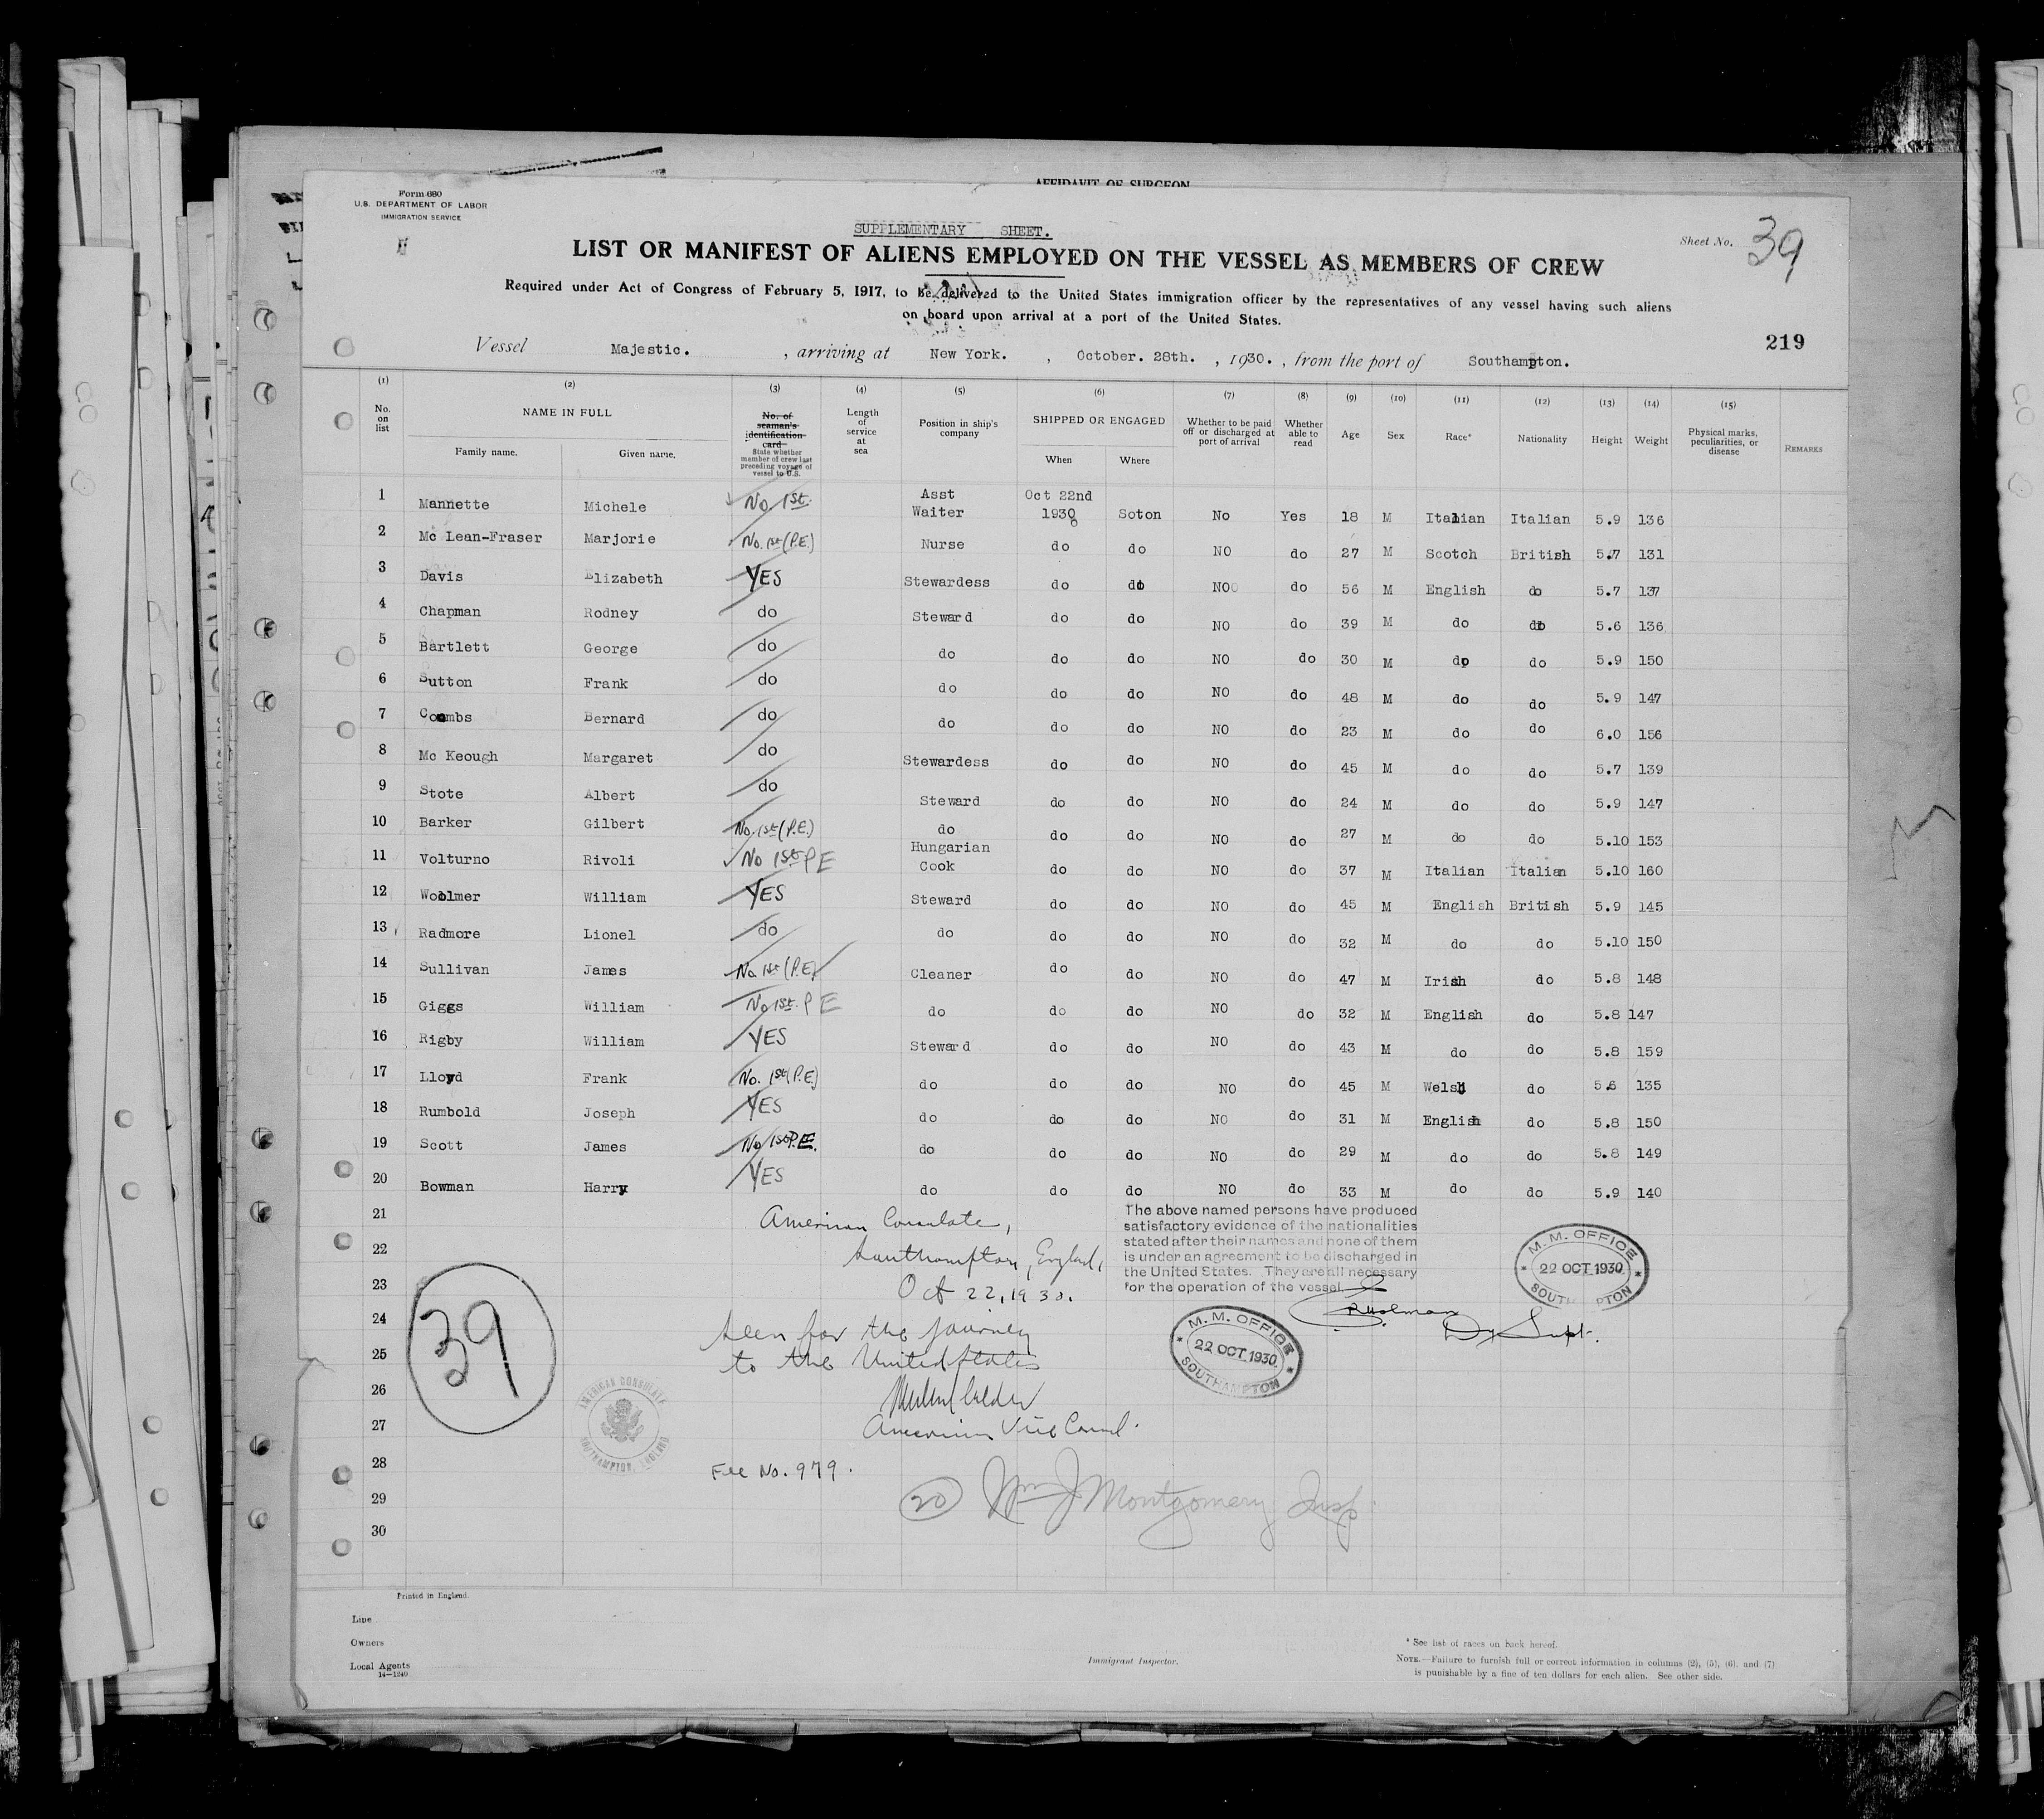 AFFIDAVIT OF SURGEON
Form 680
U.S. DEPARTMENT OF LABOR
IMMIGRATION SERVICE
SUPPLEMENTARY SHEET.
Sheet No. 39
LIST OR MANIFEST OF ALIENS EMPLOYED ON THE VESSEL AS MEMBERS OF CREW
Required under Act of Congress of February 5, 1917, to be delivered to the United States immigration officer by the representatives of any vessel having such aliens
on board upon arrival at a port of the United States.
219
Vessel Majestic. , arriving at New York. , October. 28th. , 1930. , from the port of Southampton.
(1) (2) (3) (4) (5) (6) (7) (8) (9) (10) (11) (12) (13) (14) (15)
No. on list NAME IN FULL Family name. Given name. No. of seaman's identification card State whether member of crew last preceding voyage of vessel to U.S. Length of service at sea Position in ship's company SHIPPED OR ENGAGED When Where Whether to be paid off or discharged at port of arrival Whether able to read Age Sex Race* Nationality Height Weight Physical marks, peculiarities, or disease REMARKS
1 Mannette Michele No 1st. Asst Waiter Oct 22nd 1930 Soton No Yes 18 M Italian Italian 5.9 136
2 Mc Lean-Fraser Marjorie No. 1st (P.E.) Nurse do do NO do 27 M Scotch British 5.7 131
3 Davis Elizabeth YES Stewardess do do NO do 56 M English do 5.7 137
4 Chapman Rodney do Steward do do NO do 39 M do do 5.6 136
5 Bartlett George do do do do NO do 30 M do do 5.9 150
6 Sutton Frank do do do do NO do 48 M do do 5.9 147
7 Coombs Bernard do do do do NO do 23 M do do 6.0 156
8 Mc Keough Margaret do Stewardess do do NO do 45 M do do 5.7 139
9 Stote Albert do Steward do do NO do 24 M do do 5.9 147
10 Barker Gilbert No. 1st (P.E.) do do do NO do 27 M do do 5.10 153
11 Volturno Rivoli No 1st P E Hungarian Cook do do NO do 37 M Italian Italian 5.10 160
12 Woolmer William YES Steward do do NO do 45 M English British 5.9 145
13 Radmore Lionel do do do do NO do 32 M do do 5.10 150
14 Sullivan James No. 1st (P.E) Cleaner do do NO do 47 M Irish do 5.8 148
15 Giggs William No 1st. P E do do do NO do 32 M English do 5.8 147
16 Rigby William YES Steward do do NO do 43 M do do 5.8 159
17 Lloyd Frank No. 1st (P.E.) do do do NO do 45 M Welsh do 5.8 135
18 Rumbold Joseph YES do do do NO do 31 M English do 5.8 150
19 Scott James No 1st P.E. do do do NO do 29 M do do 5.8 149
20 Bowman Harry YES do do do NO do 33 M do do 5.9 140
21
22
23
24
25
26
27
28
29
30
American Consulate,
Southampton, England,
Oct 22, 1930.
Seen for the journey
to the United States
American Vice Consul.
Fee No. 979.
The above named persons have produced
satisfactory evidence of the nationalities
stated after their names and none of them
is under an agreement to be discharged in
the United States. They are all necessary
for the operation of the vessel.
Dy Supt.
M. M. OFFICE
22 OCT 1930
SOUTHAMPTON
M. M. OFFICE
22 OCT 1930
SOUTHAMPTON
39
AMERICAN CONSULATE
SOUTHAMPTON, ENGLAND
20 Wm J Montgomery Insp
Printed in England.
Line
Owners
Local Agents
14—1240
Immigrant Inspector.
* See list of races on back hereof.
NOTE.—Failure to furnish full or correct information in columns (2), (5), (6), and (7)
is punishable by a fine of ten dollars for each alien. See other side.